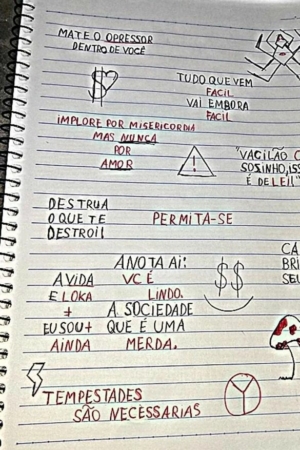 MATE O OPRESSOR
DENTRO DE VOCÊ
TUDO QUE VEM
FACIL
VAI EMBORA
FACIL
IMPLORE POR MISERICORDIA
MAS NUNCA
POR
AMOR
"VACILÃO
SOZINHO, ISS
É DE LEI!"
DESTRUA
O QUE TE
DESTROI!
PERMITA-SE
CA
BRI
SEU
ANOTA Aí:
A VIDA
E LOKA
+
EU SOU +
AINDA
VC É
LINDO.
A SOCIEDADE
QUE É UMA
MERDA.
$$
TEMPESTADES
SÃO NECESSARIAS